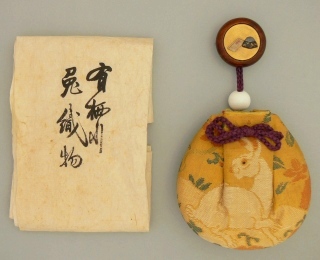 有栖川
鹿織物